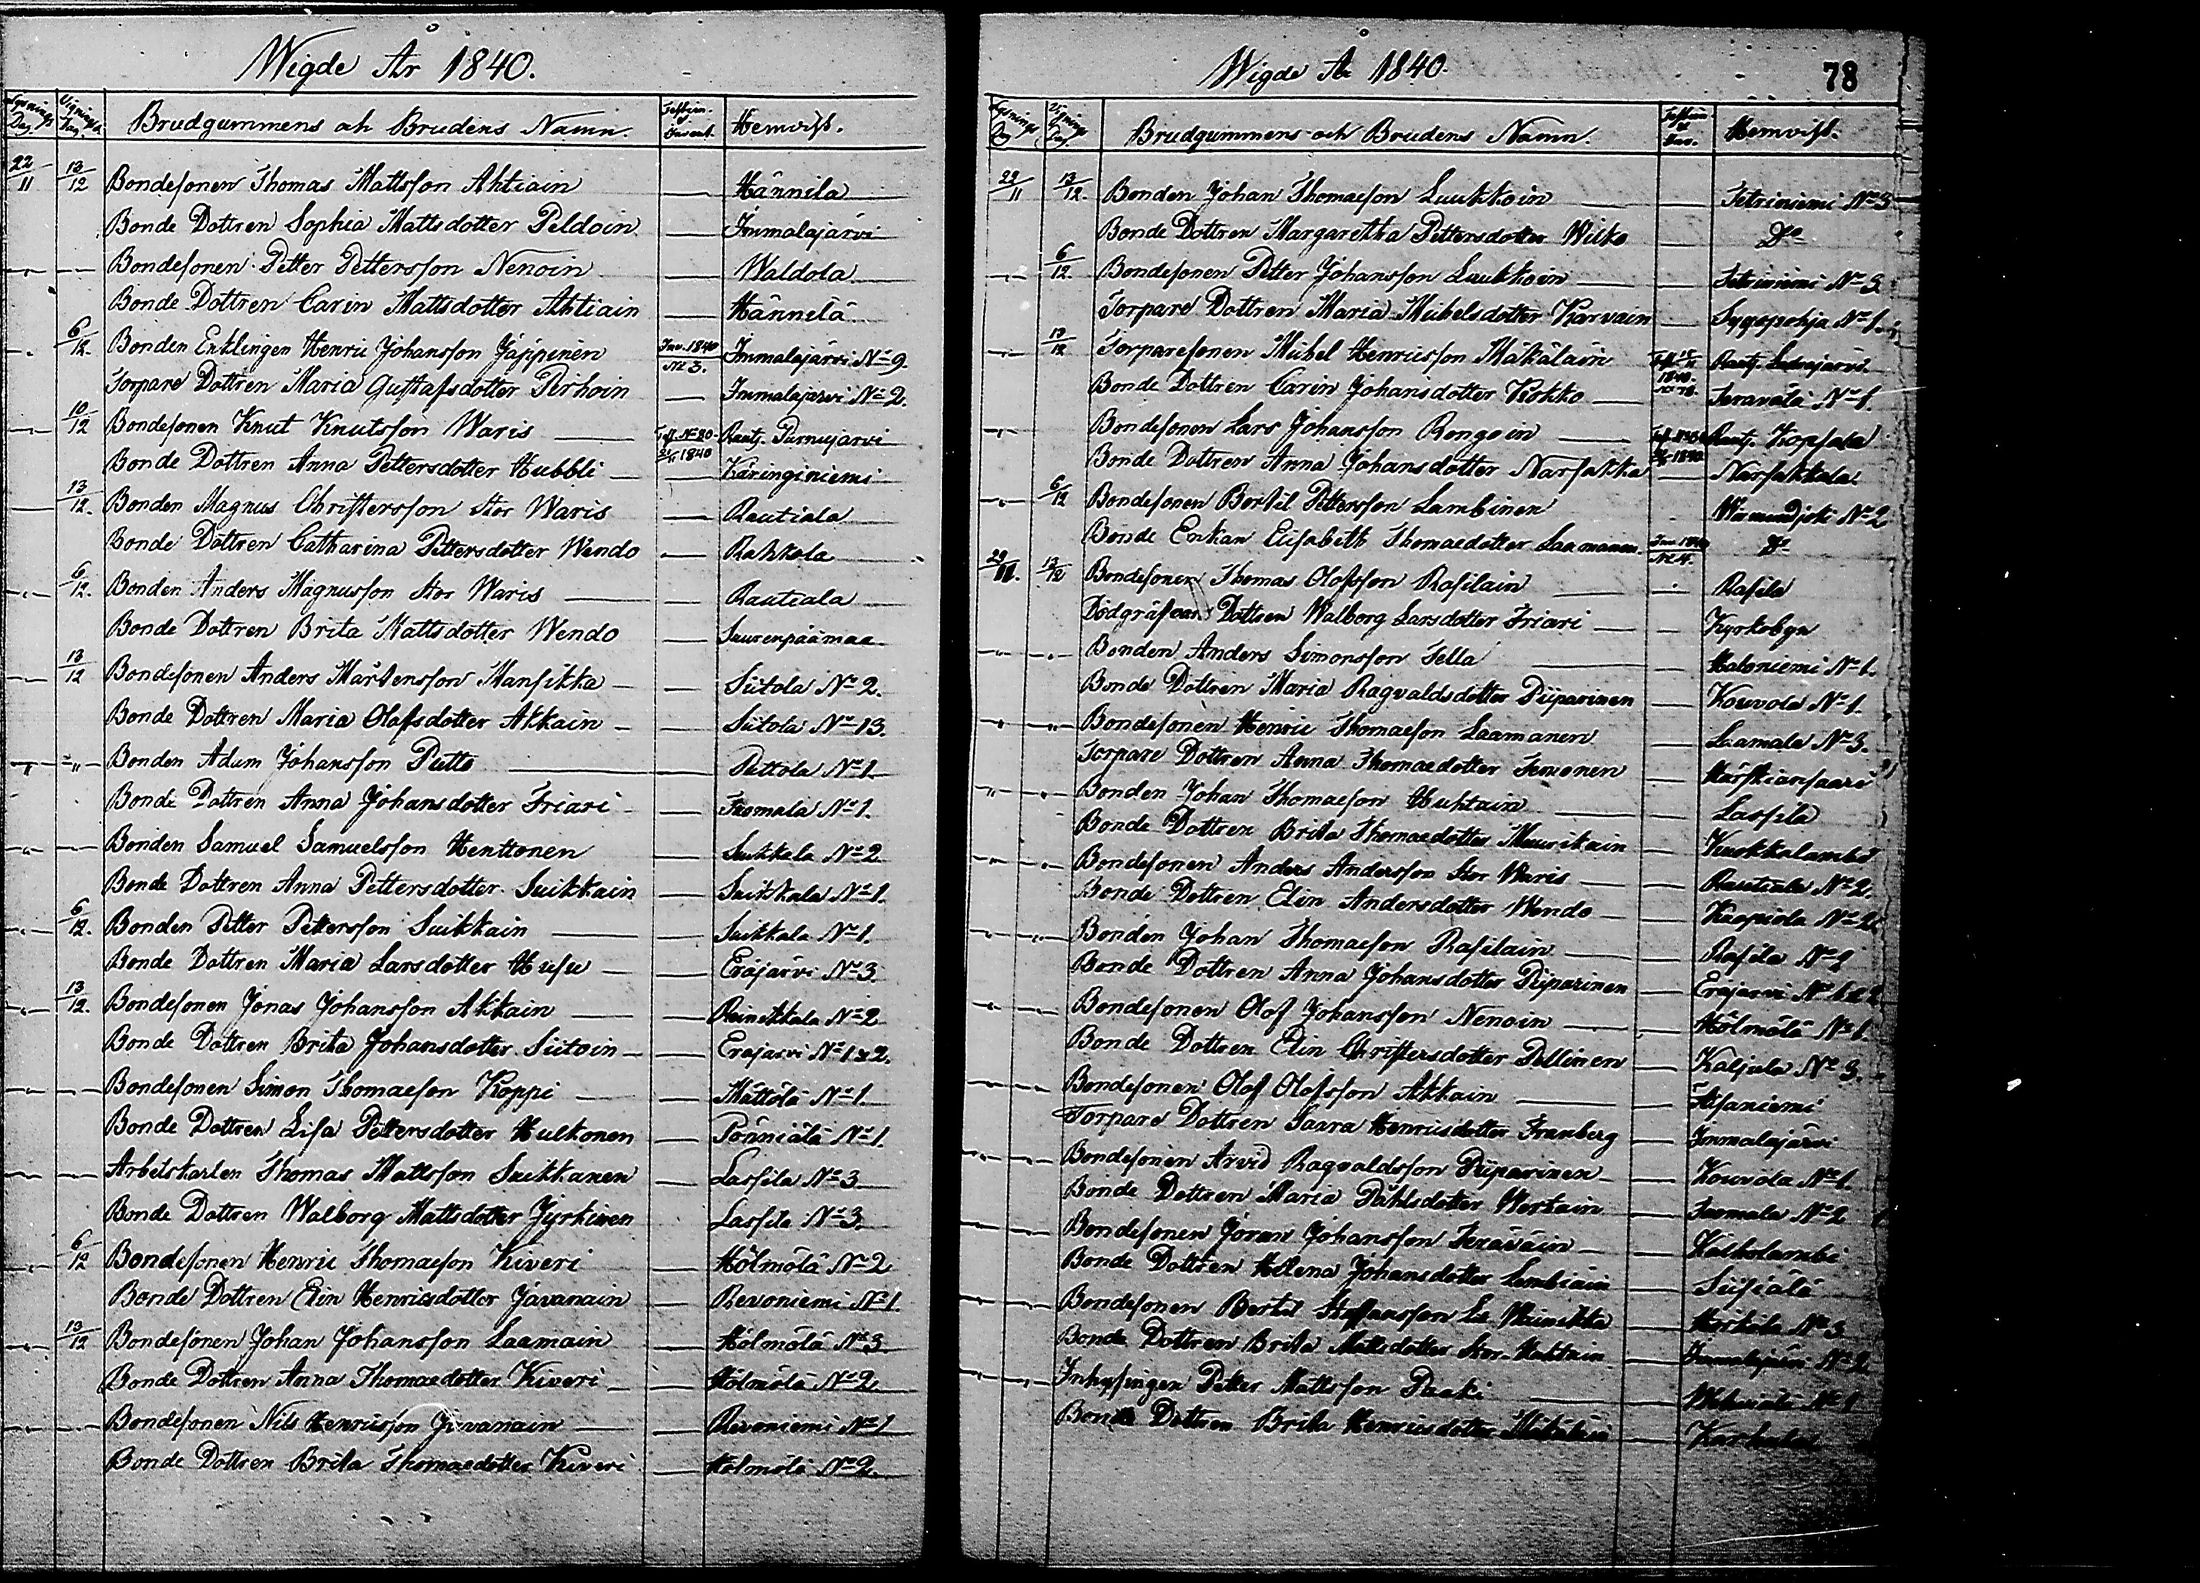 Wigde År 1840.
Lysnings Dag. Vignings Dag. Brudgummens och Brudens Namn. Hemvist.
22/11 13/12 Bondesonen Thomas Mattsson Ahtiain — Hännilä
Bonde Dottren Sophia Mattsdotter Peldoin — Immalajärvi
-"- — Bondesonen Petter Pettersson Nenoin — Waldola
Bonde Dottren Carin Mattsdotter Ahtiain — Hännilä
-"- 6/12. Bonden Enklingen Henric Johansson Jäppinen Inv. 1840 No 3. Immalajärvi No 9.
Torpare Dottren Maria Gustafsdotter Pirhoin — Immalajärvi No 2.
-"- 10/12 Bondesonen Knut Knutsson Waris — No 20 1840 Rautj. Purnujärvi
Bonde Dottren Anna Pettersdotter Hubbli — Käringiniemi
— 13/12. Bonden Magnus Christersson Stor Waris — Rautiala
Bonde Dottren Catharina Pettersdotter Wendo — Rahkola
-"- 6/12. Bonden Anders Magnusson Stor Waris — Rautiala
Bonde Dottren Brita Mattsdotter Wendo — Suurenpäämaa
— 13/12 Bondesonen Anders Mårtensson Mansikka — Siitola No 2.
Bonde Dottren Maria Olofsdotter Akkain — Siitola No 13.
-"- -"- Bonden Adam Johansson Putto — Puttola No 1.
Bonde Dottren Anna Johansdotter Friari — Tuomala No 1.
-"- — Bonden Samuel Samuelsson Henttonen — Suikkala No 2
Bonde Dottren Anna Pettersdotter Suikkain — Suikkala No 1.
-"- 6/12. Bonden Petter Pettersson Suikkain — Suikkala No 1.
Bonde Dottren Maria Larsdotter Husu — Eräjärvi No 3.
-"- 13/12. Bondesonen Jonas Johansson Akkain — Reinikkala No 2
Bonde Dottren Brita Johansdotter Siitoin — Eräjärvi No 1 & 2.
— — Bondesonen Simon Thomaesson Koppi — Mättölä No 1.
Bonde Dottren Lisa Pettersdotter Hulkonen — Pönniälä No 1.
— — Arbetskarlen Thomas Mattsson Suikkanen — Lassila No 3
Bonde Dottren Walborg Mattsdotter Jyrkinen — Lassila No 3.
-"- 6/12 Bondesonen Henric Thomaesson Kiveri — Hölmölä No 2
Bonde Dottren Elin Henricsdotter Jävanain — Revoniemi No 1
-"- 13/12 Bondesonen Johan Johansson Laamain — Hölmölä No 3
Bonde Dottren Anna Thomaedotter Kiveri — Hölmölä No 2
-"- — Bondesonen Nils Henricsson Jävanain — Revoniemi No 1
Bonde Dottren Brita Thomaedotter Kiveri — Hölmölä No 2.
Wigde År 1840.
78
Lysnings Dag Vignings Dag. Brudgummens och Brudens Namn. Hemvist.
22/11 13/12. Bonden Johan Thomaesson Luukkoin — Tetriniemi No 3
Bonde Dottren Margaretha Pettersdotter Wilko — Do
-"- 6/12 Bondesonen Petter Johansson Luukkoin — Tetriniemi No 3
Torpare Dottren Maria Michelsdotter Karvain — Syyspohja No 1.
-"- 13/12 Torparesonen Michel Henricsson Mäkäläin 1840 No 78. Rautj.
Bonde Dottren Carin Johansdotter Kokko — Teravälä No 1.
-"- Bondesonen Lars Johansson Rongoin — 1840 Rautj. Kopsala
Bonde Dottren Anna Johansdotter Narsakka — Narsakkala
-"- 6/12 Bondesonen Bertil Pettersson Lambinen No 2
Bonde Enkan Elisabeth Thomaedotter Laamanen Inv. 1840 No 4. Do
29/11. 13/12 Bondesonen Thomas Olofsson Rasilain — Rasila
Dödgräfvare Dottren Walborg Larsdotter Friari — Kyrkobyn
-"- -"- Bonden Anders Simonsson Tella — Haloniemi No 1.
Bonde Dottren Maria Ragvaldsdotter Piiparinen — Kouvola No 1.
-"- -"- Bondesonen Henric Thomaesson Laamanen — Laamala No 3.
Torpare Dottren Anna Thomaedotter Temonen — Härskiansaari
-"- -"- Bonden Johan Thomaesson Huhtain — Lassila
Bonde Dottren Brita Thomaedotter Muurikain — Kuukkalambi
-"- -"- Bondesonen Anders Andersson Stor Waris — Rautiala No 2.
Bonde Dottren Elin Andersdotter Wendo — Kaapiola No 2.
-"- -"- Bonden Johan Thomaesson Rasilain — Rasila No 2
Bonde Dottren Anna Johansdotter Piiparinen — Eräjärvi No 1 & 2
-"- -"- Bondesonen Olof Johansson Nenoin — Hölmölä No 1.
Bonde Dottren Elin Christersdotter Pellinen — Kaljula No 3.
-"- -"- Bondesonen Olof Olofsson Akkain —
Torpare Dottren Saara Henricsdotter Franberg — Immalajärvi
-"- -"- Bondesonen Arvid Ragvaldsson Piiparinen — Kouvola No 1.
Bonde Dottren Maria Påhlsdotter Wertain — Tuomala No 2
-"- -"- Bondesonen Jöran Johansson Teräväin — Kalkolambi
Bonde Dottren Helena Johansdotter Lembiäin — Siisiälä
-"- -"- Bondesonen Bertil Staffansson — No 3
Bonde Dottren Brita Mattsdotter Stor — Immalajärvi No 2
-"- -"- Inhysingen Petter Mattsson Paaki — No 1
Bonde Dottren Brita Henricsdotter — Karhula